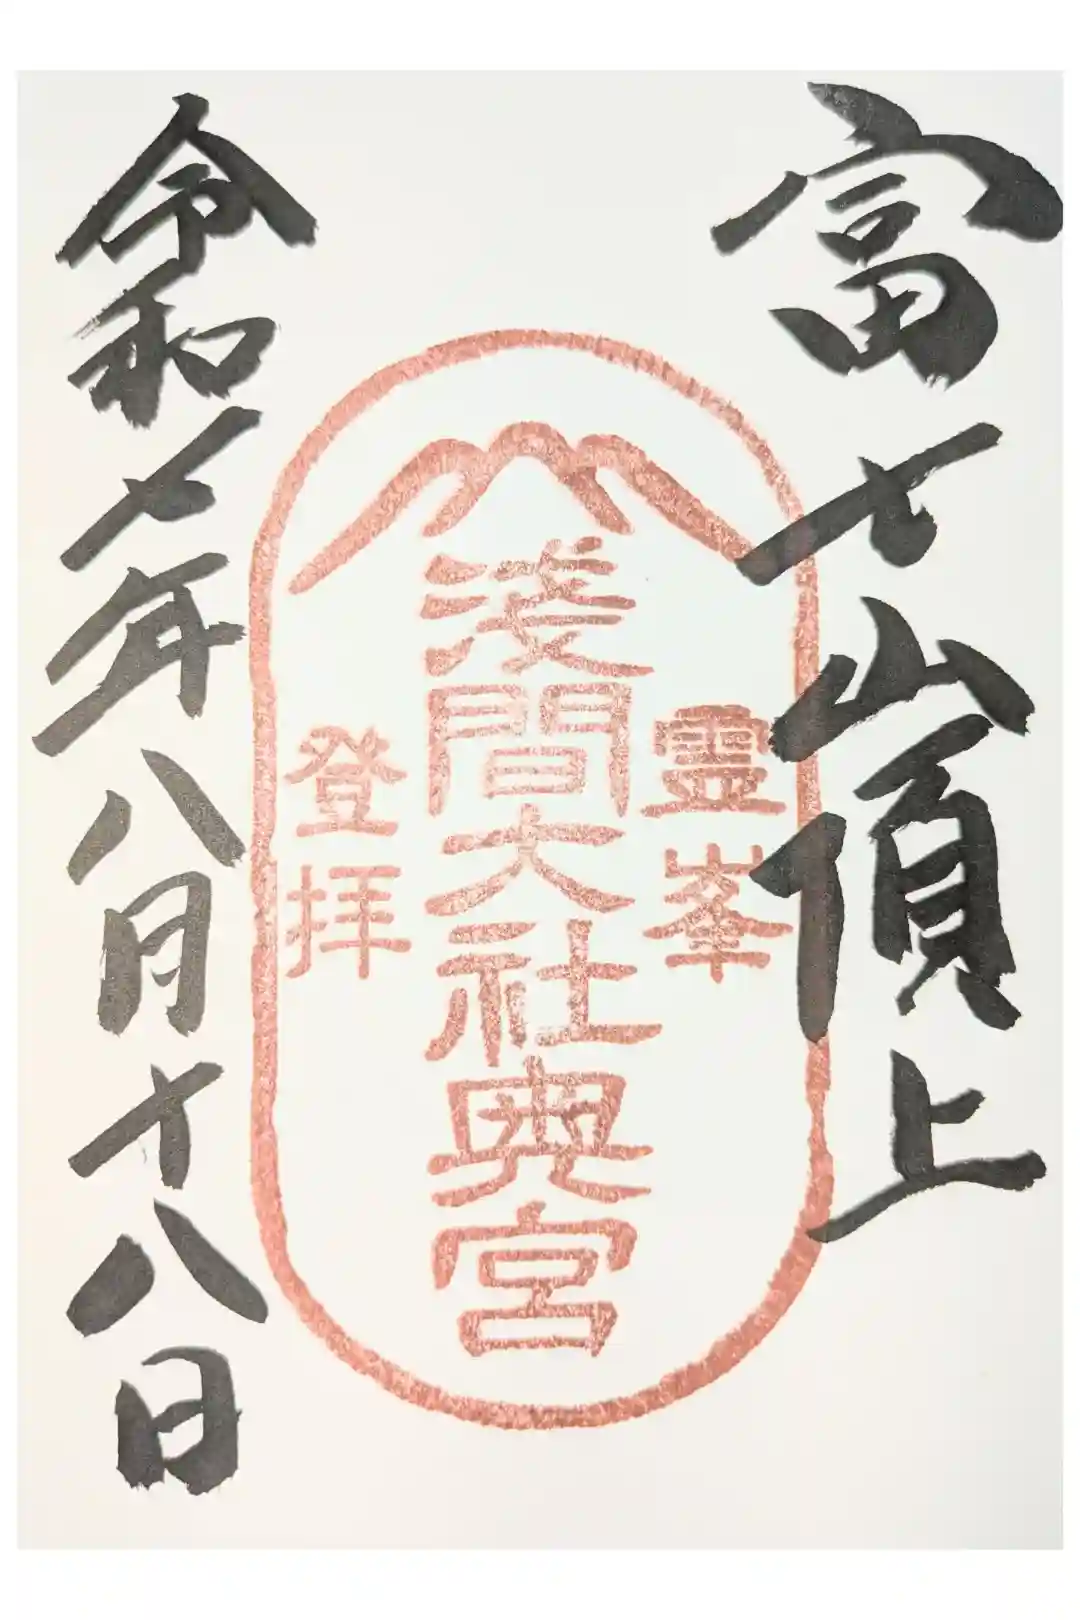 富士山頂上
霊峯
浅間大社奥宮
登拝
令和七年八月十八日